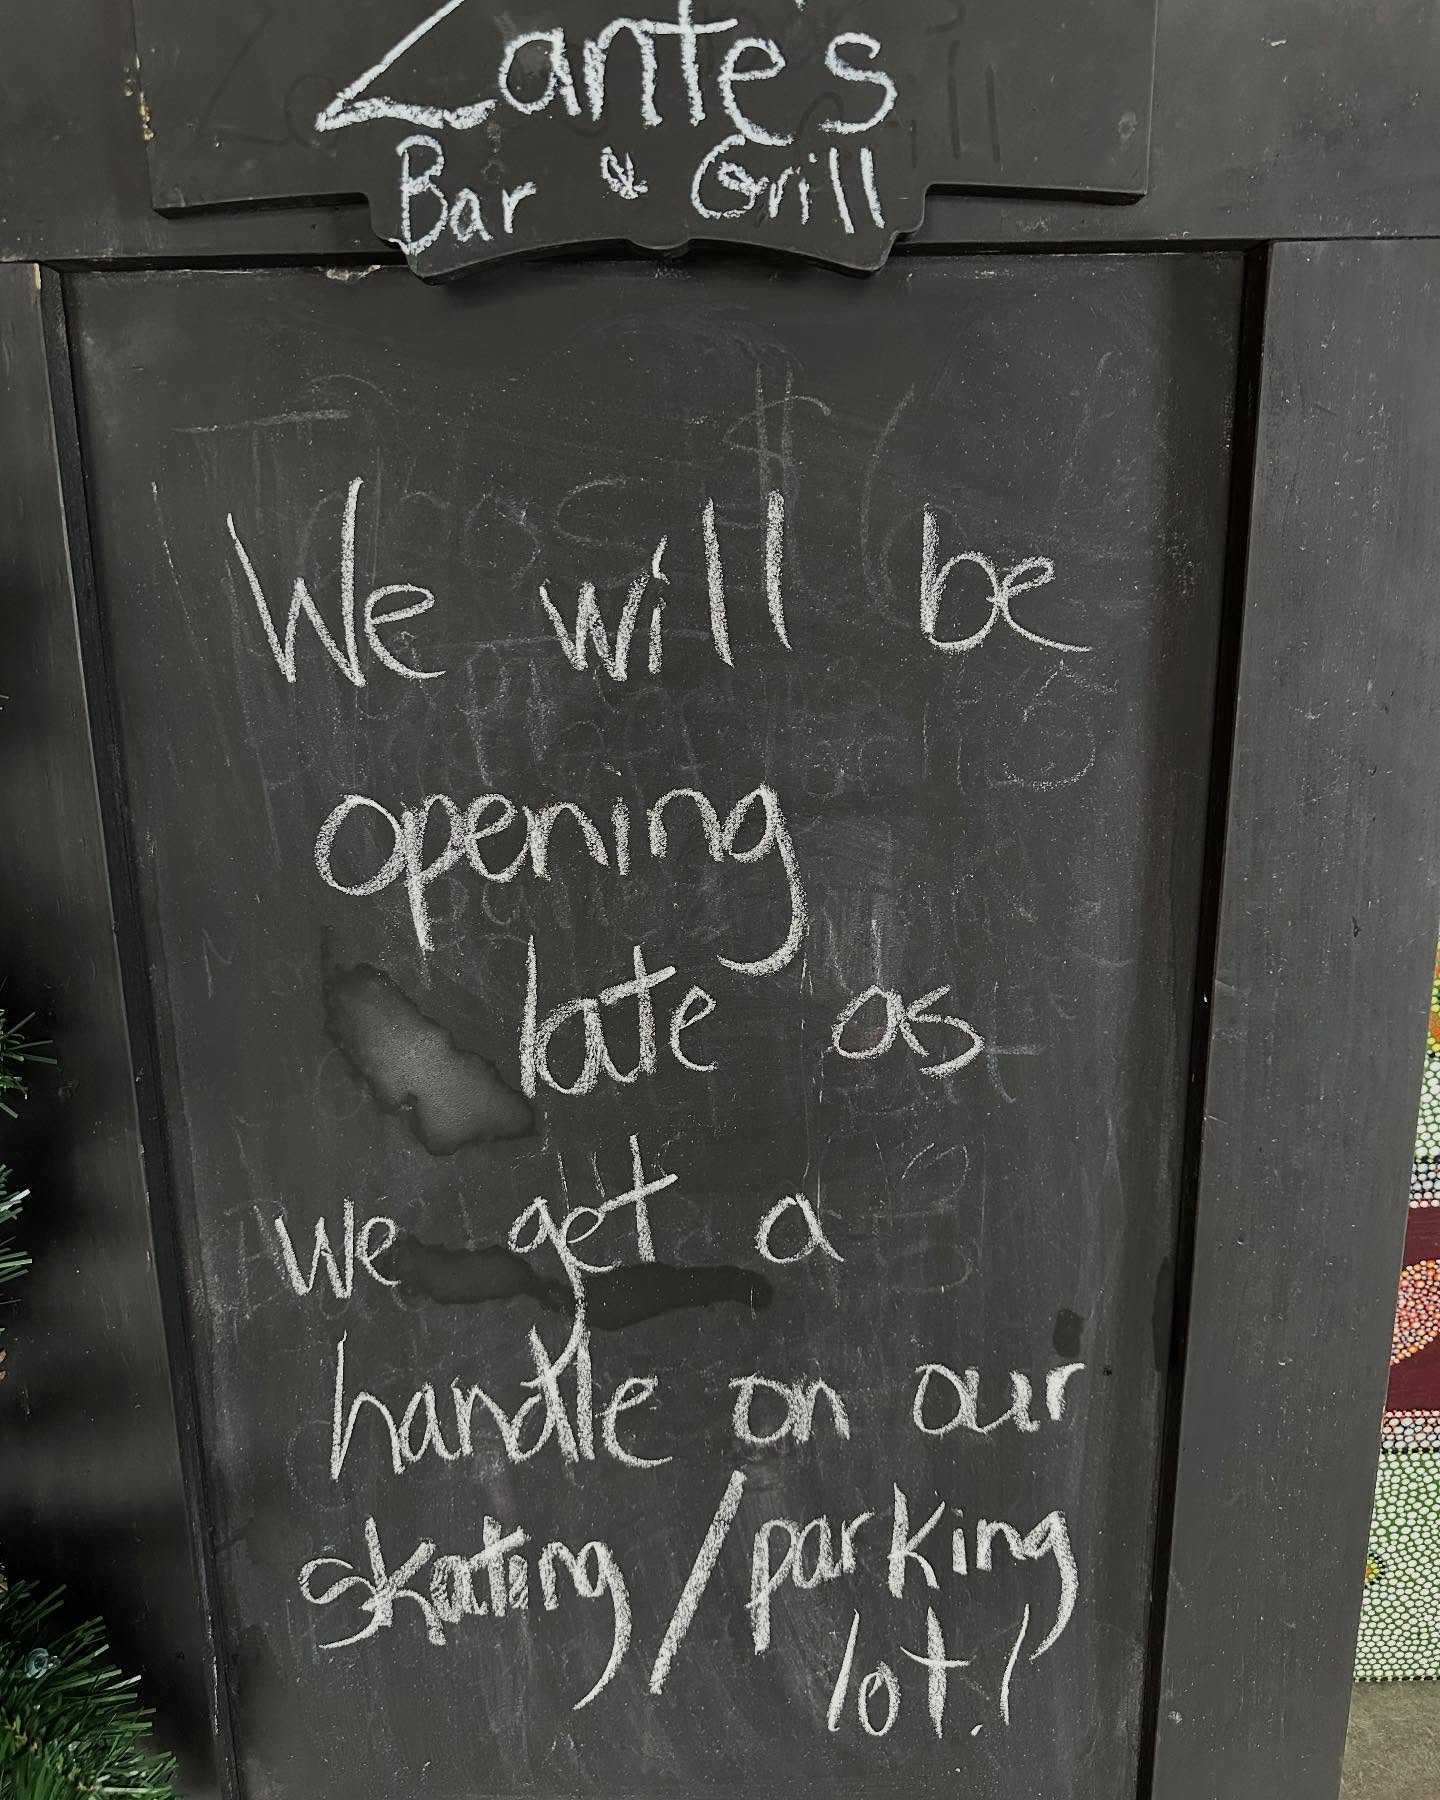 Zante's
Bar & Grill
We will be
opening
late as
we get a
handle on our
skating / parking
lot!